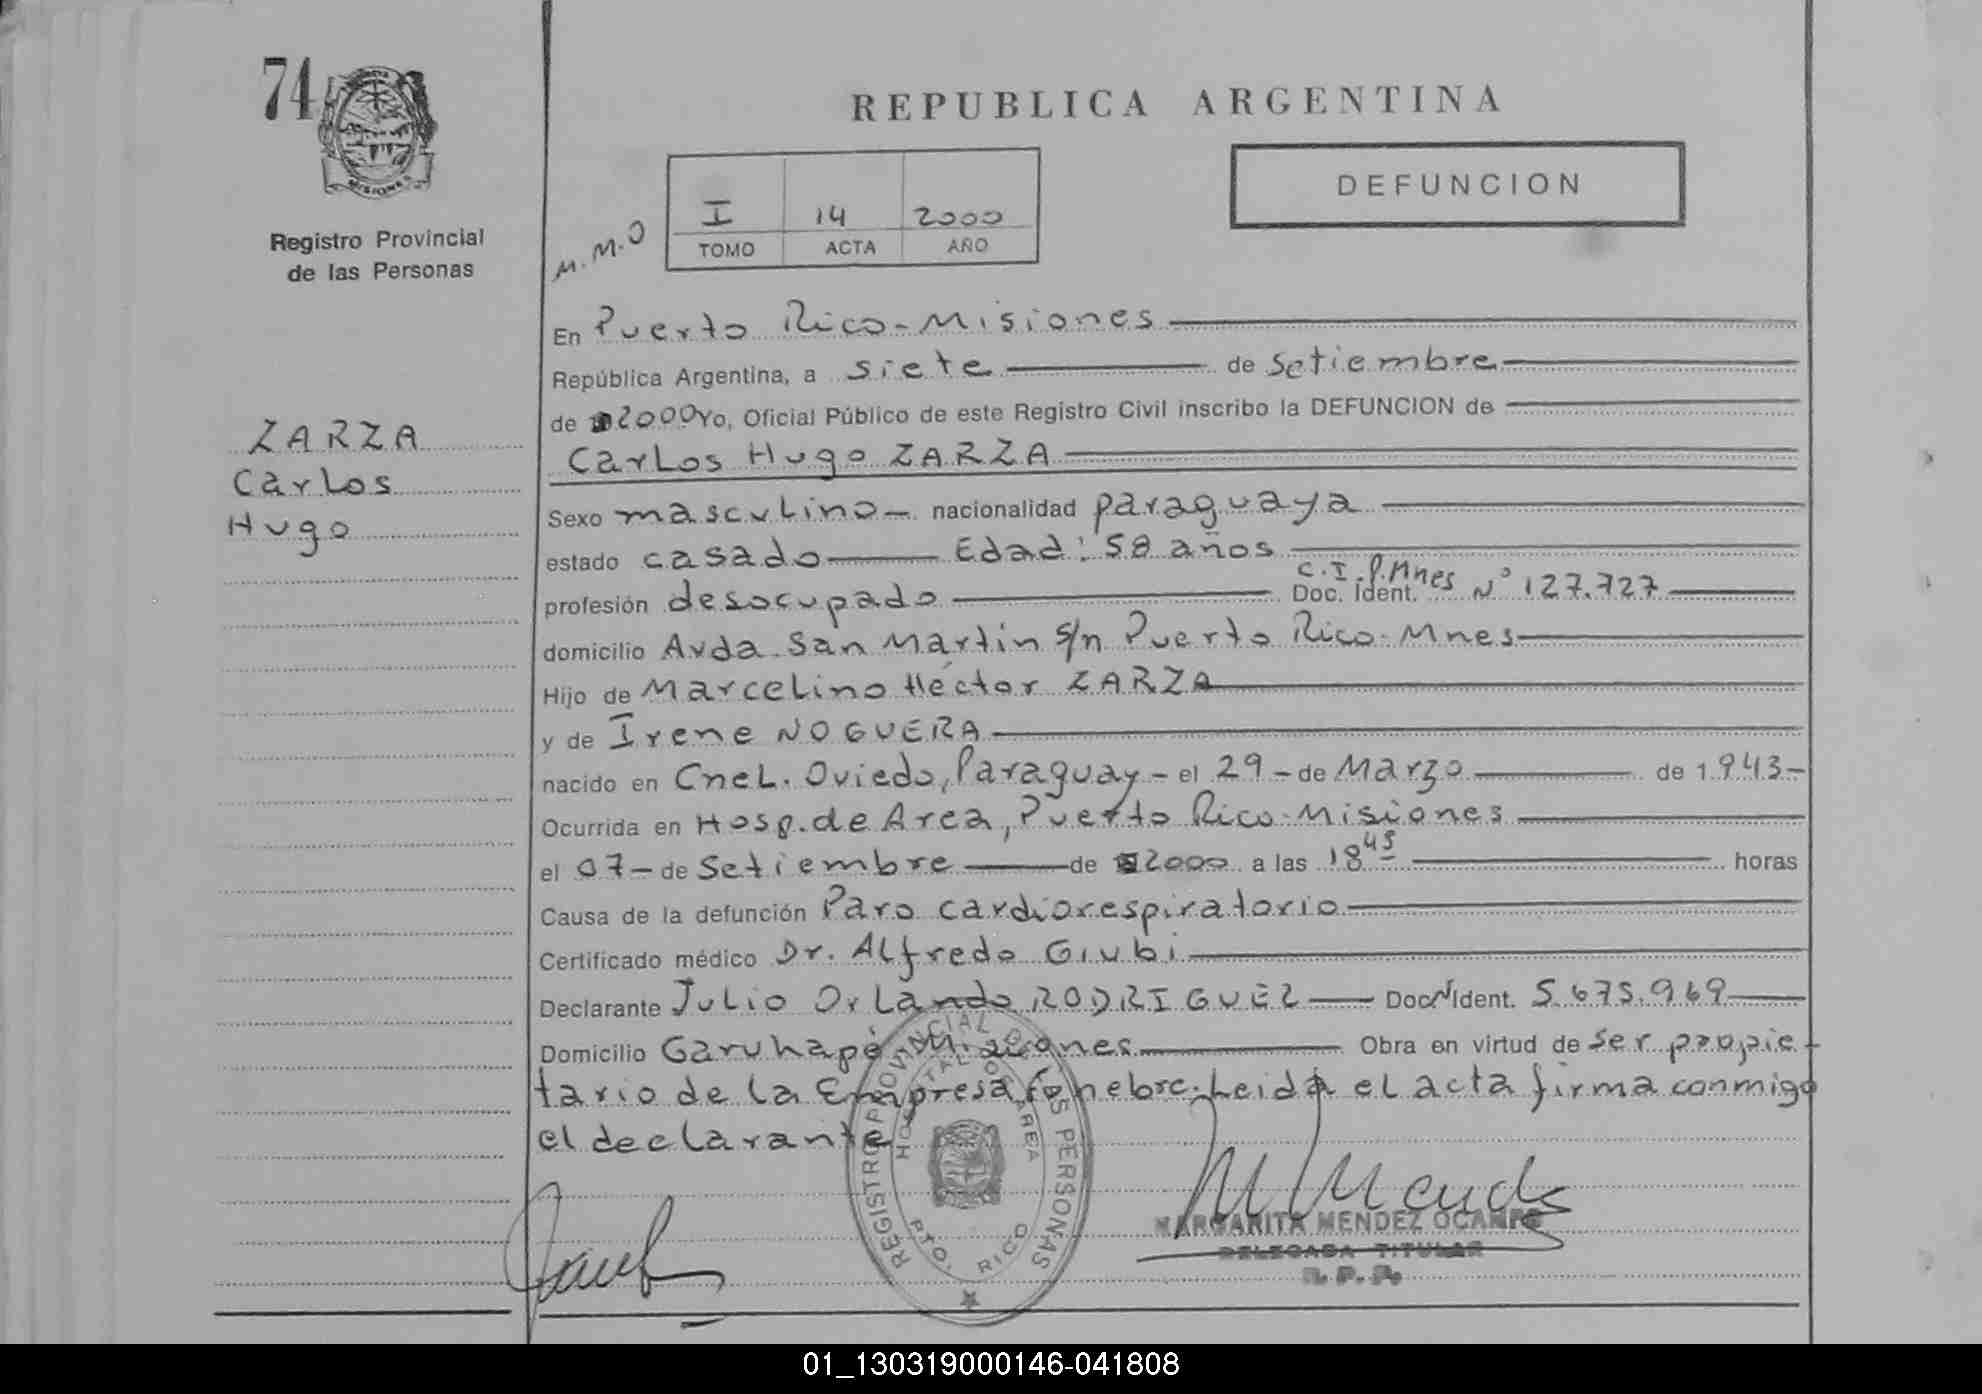 74
MISIONES
Registro Provincial
de las Personas
REPUBLICA ARGENTINA
DEFUNCION
M.M.O
I 14 2000
TOMO ACTA AÑO
ZARZA
Carlos
Hugo
En Puerto Rico-Misiones
República Argentina, a siete de Setiembre
de 2000 Yo, Oficial Público de este Registro Civil inscribo la DEFUNCION de
Carlos Hugo ZARZA
Sexo masculino - nacionalidad paraguaya
estado casado Edad: 58 años
profesión desocupado Doc. Ident. C.I.P.Mnes N° 127.727
domicilio Avda. San Martin s/n Puerto Rico-Mnes
Hijo de Marcelino Héctor ZARZA
y de Irene NOGUERA
nacido en Cnel. Oviedo, Paraguay - el 29 - de Marzo de 1.943-
Ocurrida en Hosp. de Area, Puerto Rico-Misiones
el 07 - de Setiembre de 2000 a las 18 45 horas
Causa de la defunción Paro cardiorespiratorio
Certificado médico Dr. Alfredo Giubi
Declarante Julio Orlando RODRIGUEZ Doc. Ident. 5.675.969
Domicilio Garuhapé Misiones Obra en virtud de ser propie-
tario de la Empresa fúnebre. Leida el acta firma conmigo
el declarante
REGISTRO PROVINCIAL DE LAS PERSONAS
HOSPITAL DE AREA
PTO. RICO
MARGARITA MENDEZ OCAMPO
DELEGADA TITULAR
R. P. P.
01_130319000146-041808